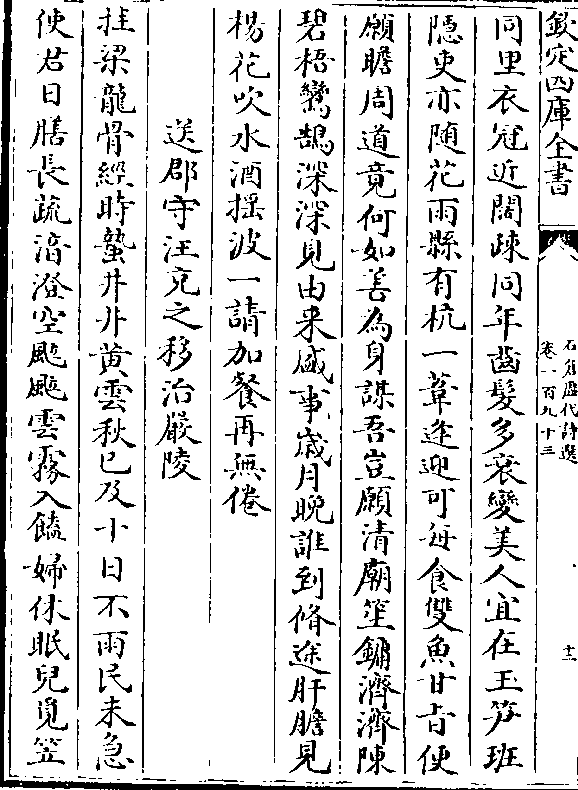 欽定四庫全書
石倉歷代詩選
卷一百九十三
十二
同里衣冠近闊疎同年齒髮多衰變美人宜在玉笋班
隠吏亦随花雨縣有杭一葦逢迎可每食雙魚甘旨便
願瞻周道竟何如善為身謀吾豈願清廟笙鏞濟濟陳
碧梧鸞鵠深深見由来盛事歲月晚誰到脩途肝膽見
楊花吹水酒摇波一請加餐再無倦
送郡守汪克之移治嚴陵
挂梁龍骨經時蟄廾廾黄雲秋已及十日不雨民未急
使君日膳長蔬㴃澄空颷颷雲霧入饁婦休眠兒覓笠